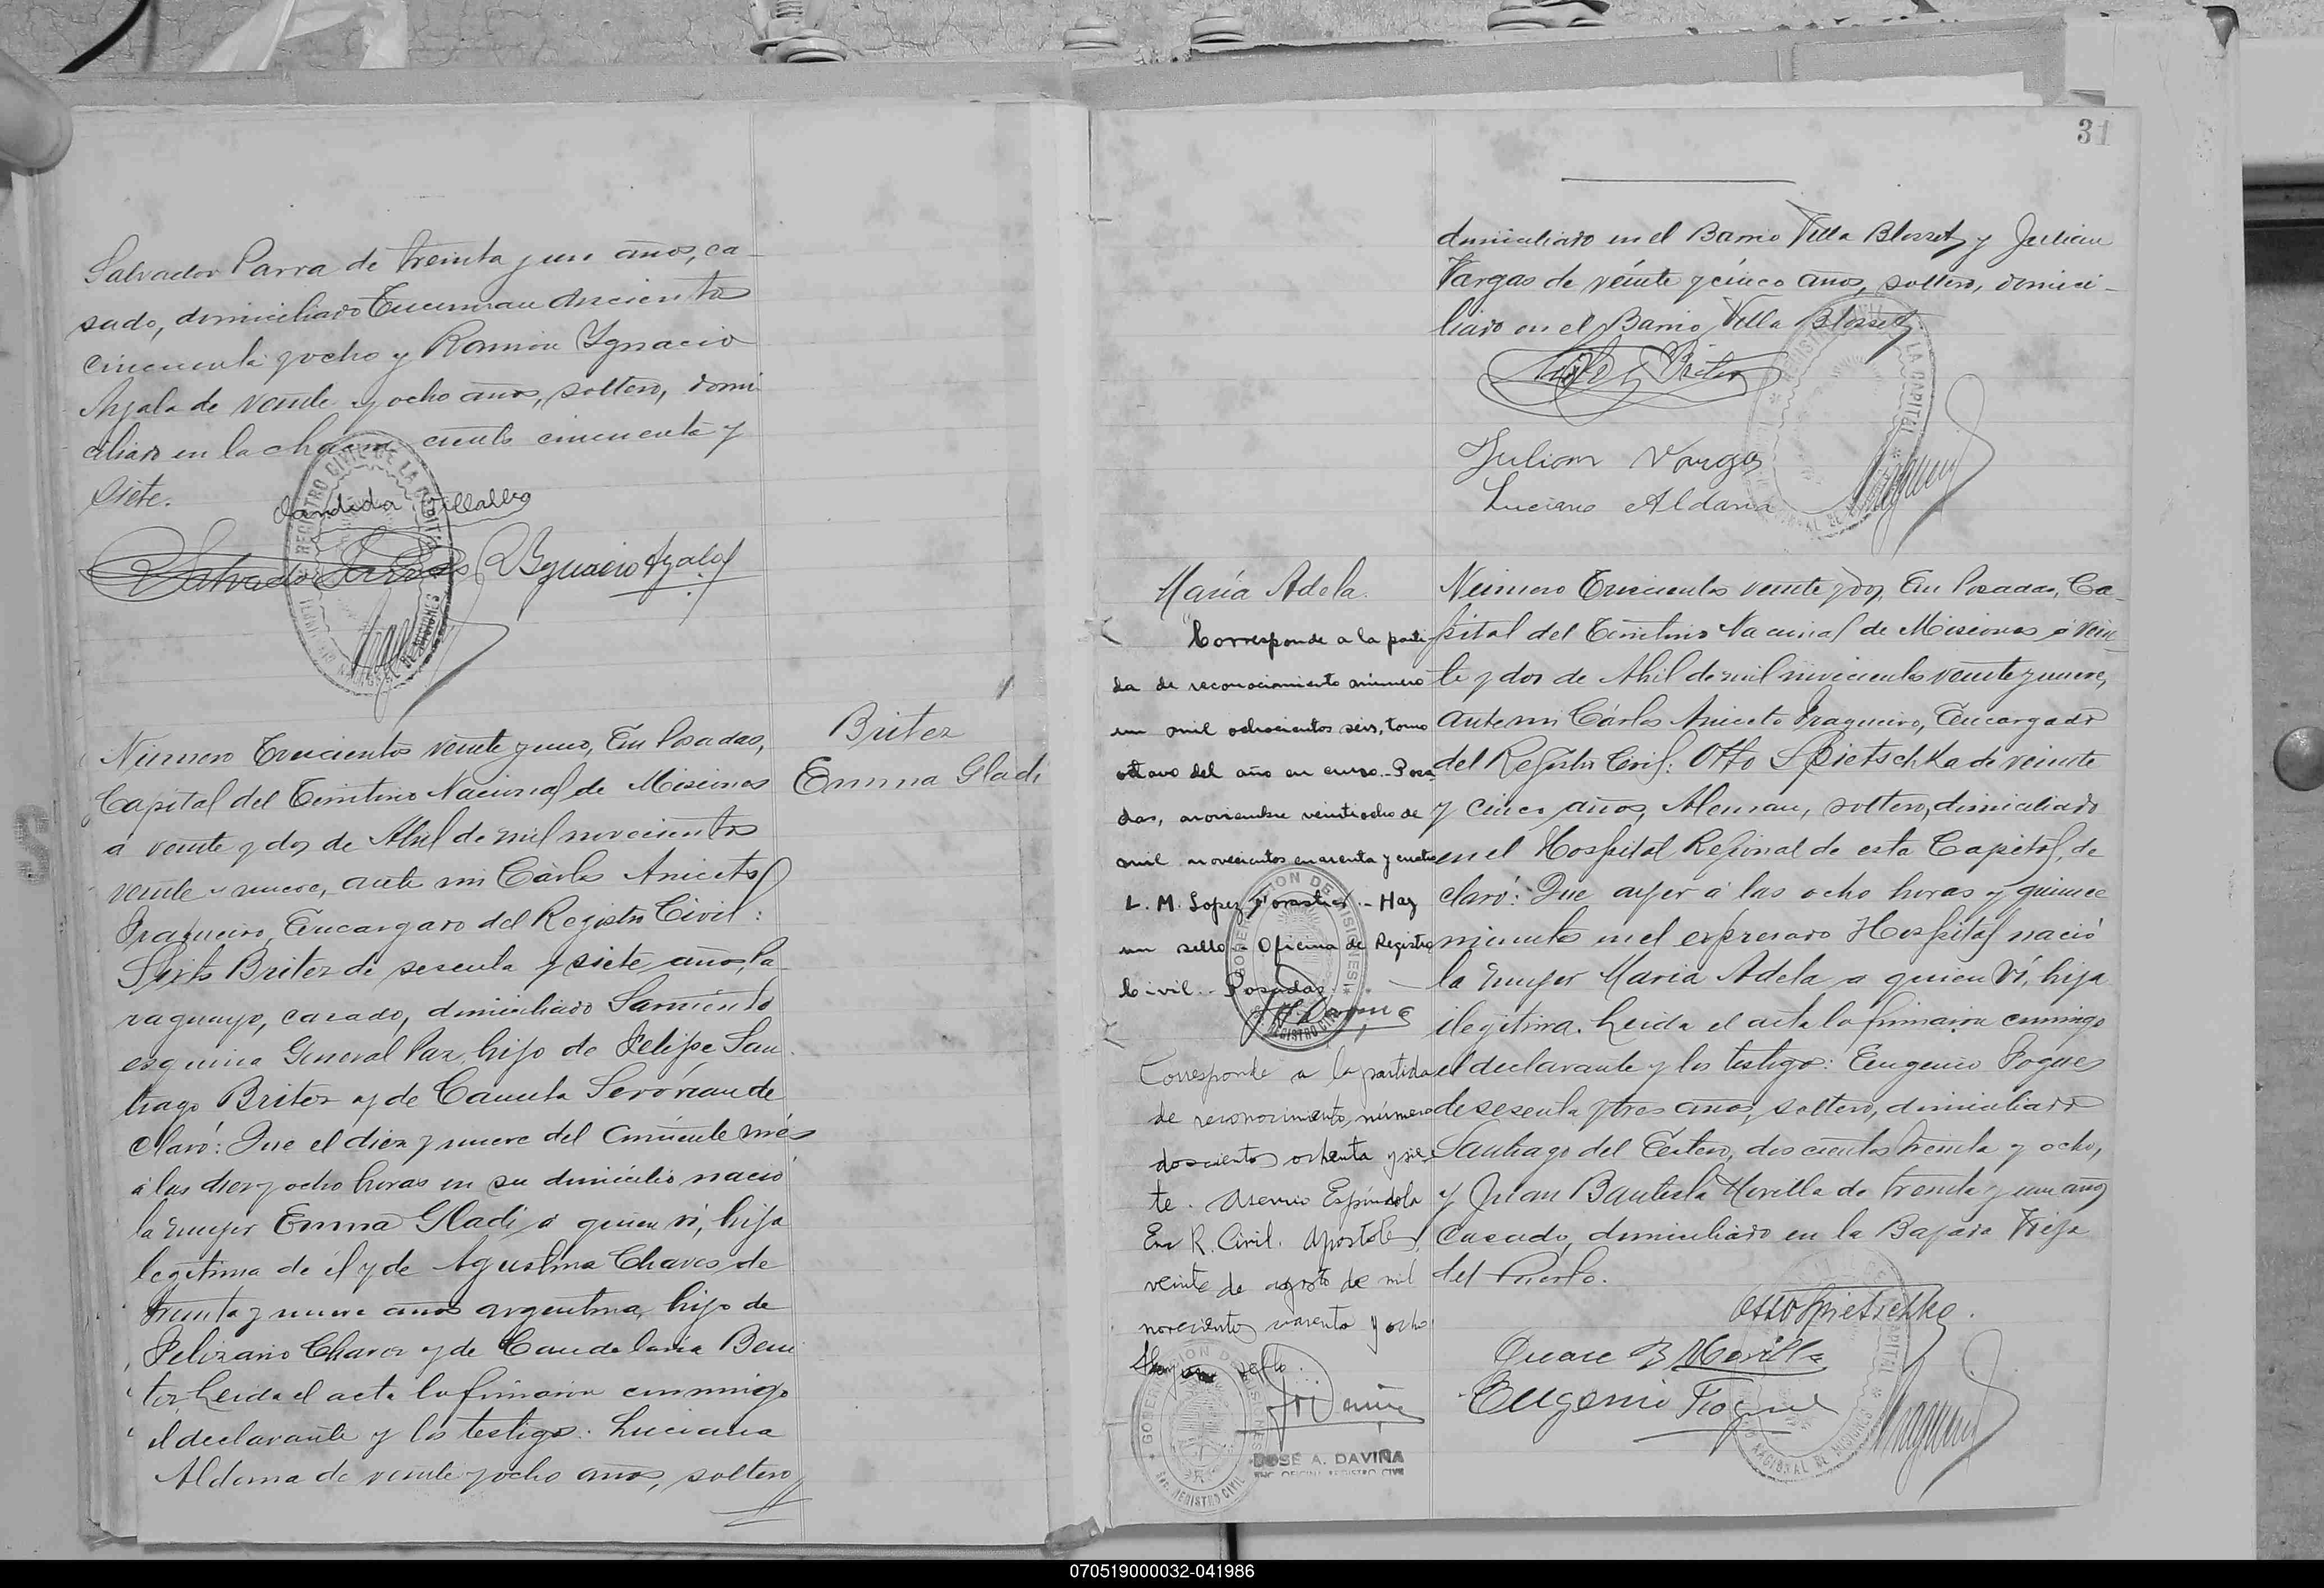 Salvador Parra de treinta y un años, ca-
sado, domiciliado Tucuman doscientos
cincuenta y ocho y Ramón Ygnacio
Ayala de veinte y ocho años, soltero, domi
ciliado en la chacra ciento cincuenta y
siete.
Candida Villalba
Salvador Parra Ygnacio Ayala
REGISTRO CIVIL DE LA CAPITAL
Britez
Emma Gladi
Número Trescientos veinte y uno, En Posadas,
Capital del Territorio Nacional de Misiones
a veinte y dos de Abril de mil novecientos
veinte y nueve, ante mi Cárlos Aniceto
Fragueiro, Encargado del Registro Civil:
Britez de sesenta y siete años, Pa-
raguayo, casado, domiciliado Sarmiento
esquina General Paz, hijo de Felipe San-
tiago Britez y de Camila de
claró: Que el diez y nueve del corriente més
á las diez y ocho horas en su domicilio nació
la mujer Emma Gladi á quien ví, hija
legítima de él y de Agustina Chaves de
treinta y nueve años argentina, hija de
Felizario Chavez y de Candelaria Beni
tez. Leida el acta la firmaron conmigo
el declarante y los testigos: Luciano
Aldana de veinte y ocho años, soltero,
31
domiciliado en el Barrio Villa Blosset y Julian
Vargas de veinte y cinco años, soltero, domici-
liado en el Barrio Villa Blosset.
Britez
Julian Vargas
Luciano Aldana
María Adela.
Corresponde a la parti-
da de reconocimiento número
un mil ochocientos seis, tomo
octavo del año en curso.- Posa-
das, noviembre veintiocho de
mil novecientos cuarenta y cuatro
L. M. Lopez Forastier.- Hay
un sello - Oficina de Registro
Civil.- Posadas.
Corresponde a la partida
de reconocimiento número
doscientos ochenta y sie-
te. Asencio Espíndola
Enc R. Civil. Apostoles,
veinte de agosto de mil
novecientos cuarenta y ocho
Hay un sello.
JOSÉ A. DAVIÑA
ENC. OFICINA REGISTRO CIVIL
Número Trescientos veinte y dos, En Posadas, Ca-
pital del Territorio Nacional de Misiones á vein-
te y dos de Abril de mil novecientos veinte y nueve,
ante mi Cárlos Aniceto Fragueiro, Encargado
del Registro Civil: Otto Spietschka de veinte
y cinco años, Aleman, soltero, domiciliado
en el Hospital Regional de esta Capital, de
claró: Que ayer á las ocho horas y quince
minutos en el expresado Hospital nació
la mujer Maria Adela a quien ví, hija
ilegítima. Leida el acta la firmaron conmigo
el declarante y los testigos: Eugenio Pogues
de sesenta y tres años, soltero, domiciliado
Santiago del Estero, doscientos treinta y ocho,
y Juan Bautista Morilla de treinta y un años
casado, domiciliado en la Bajada Vieja
del Puerto.
Otto Spietschka.
Juan B Morilla
Eugenio
070519000032-041986